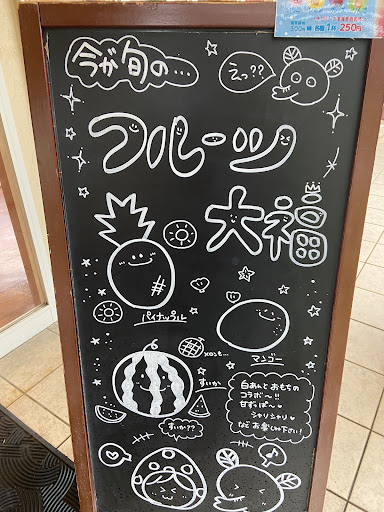 500ml 瓶 各種 1杯 250円
今が旬の・・・
えっ??
フルーツ
大福
パイナップル
マンゴー
メロンも…
すいか
すいか??
白あんと おもちの
コラボ〜!!
甘ずっぱ〜♥
シャリシャリ♥
など お楽しみ下さい!